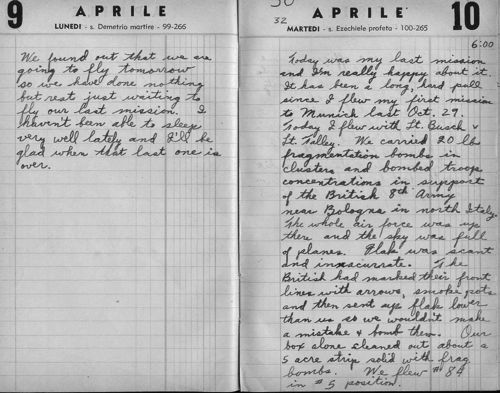 9 APRILE
LUNEDI - s. Demetrio martire - 99-266
We found out that we are
going to fly tomorrow
so we have done nothing
but rest just waiting to
fly our last mission. I
haven't been able to sleep
very well lately and I'll be
glad when that last one is
over.
32
APRILE 10
MARTEDI - s. Ezechiele profeta - 100-265
6:00
Today was my last mission
and I'm really happy about it.
It has been a long, hard pull
since I flew my first mission
to Munich last Oct. 29.
Today I flew with Lt. Busch &
Lt. Talley. We carried 20 lb
fragmentation bombs in
clusters and bombed troop
concentrations in support
of the British 8th Army
near Bologna in north Italy.
The whole air force was up
there and the sky was full
of planes. Flak was scant
and innacurrate. The
British had marked their front
lines with arrows, smoke pots
and then sent up flak lower
than us so we wouldn't make
a mistake & bomb them. Our
box alone cleaned out about a
5 acre strip solid with frag
bombs. We flew #84
in #5 position.